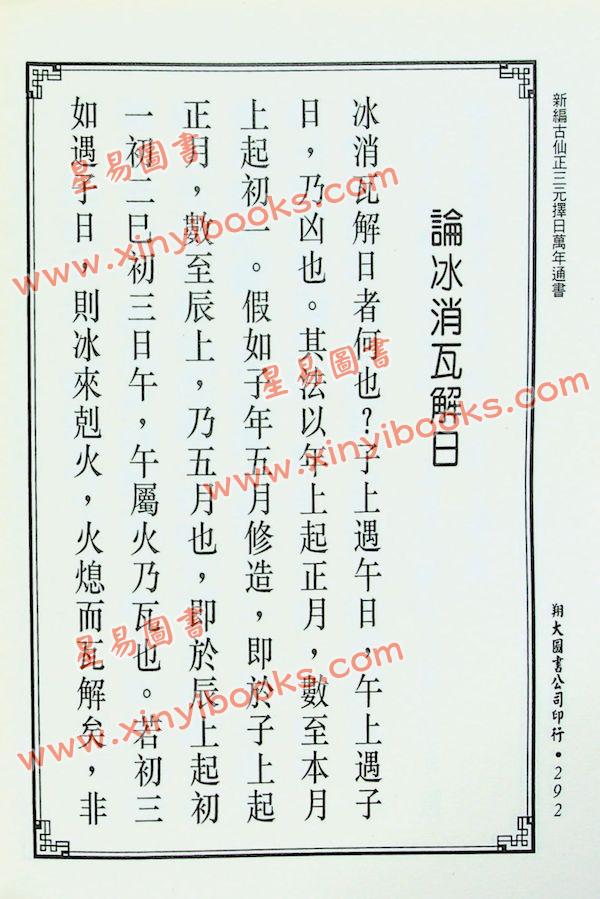 新編古仙正三元擇日萬年通書
翔大圖書公司印行•292
論冰消瓦解日
冰消瓦解日者何也？子上遇午日，午上遇子
日，乃凶也。其法以年上起正月，數至本月
上起初一。假如子年五月修造，即於子上起
正月，數至辰上，乃五月也，即於辰上起初
一初二巳初三日午，午屬火乃瓦也。若初三
如遇子日，則冰來剋火，火熄而瓦解矣，非
星易圖書
www.xinyibooks.com
星易圖書
www.xinyibooks.com
星易圖書
www.xinyibooks.com